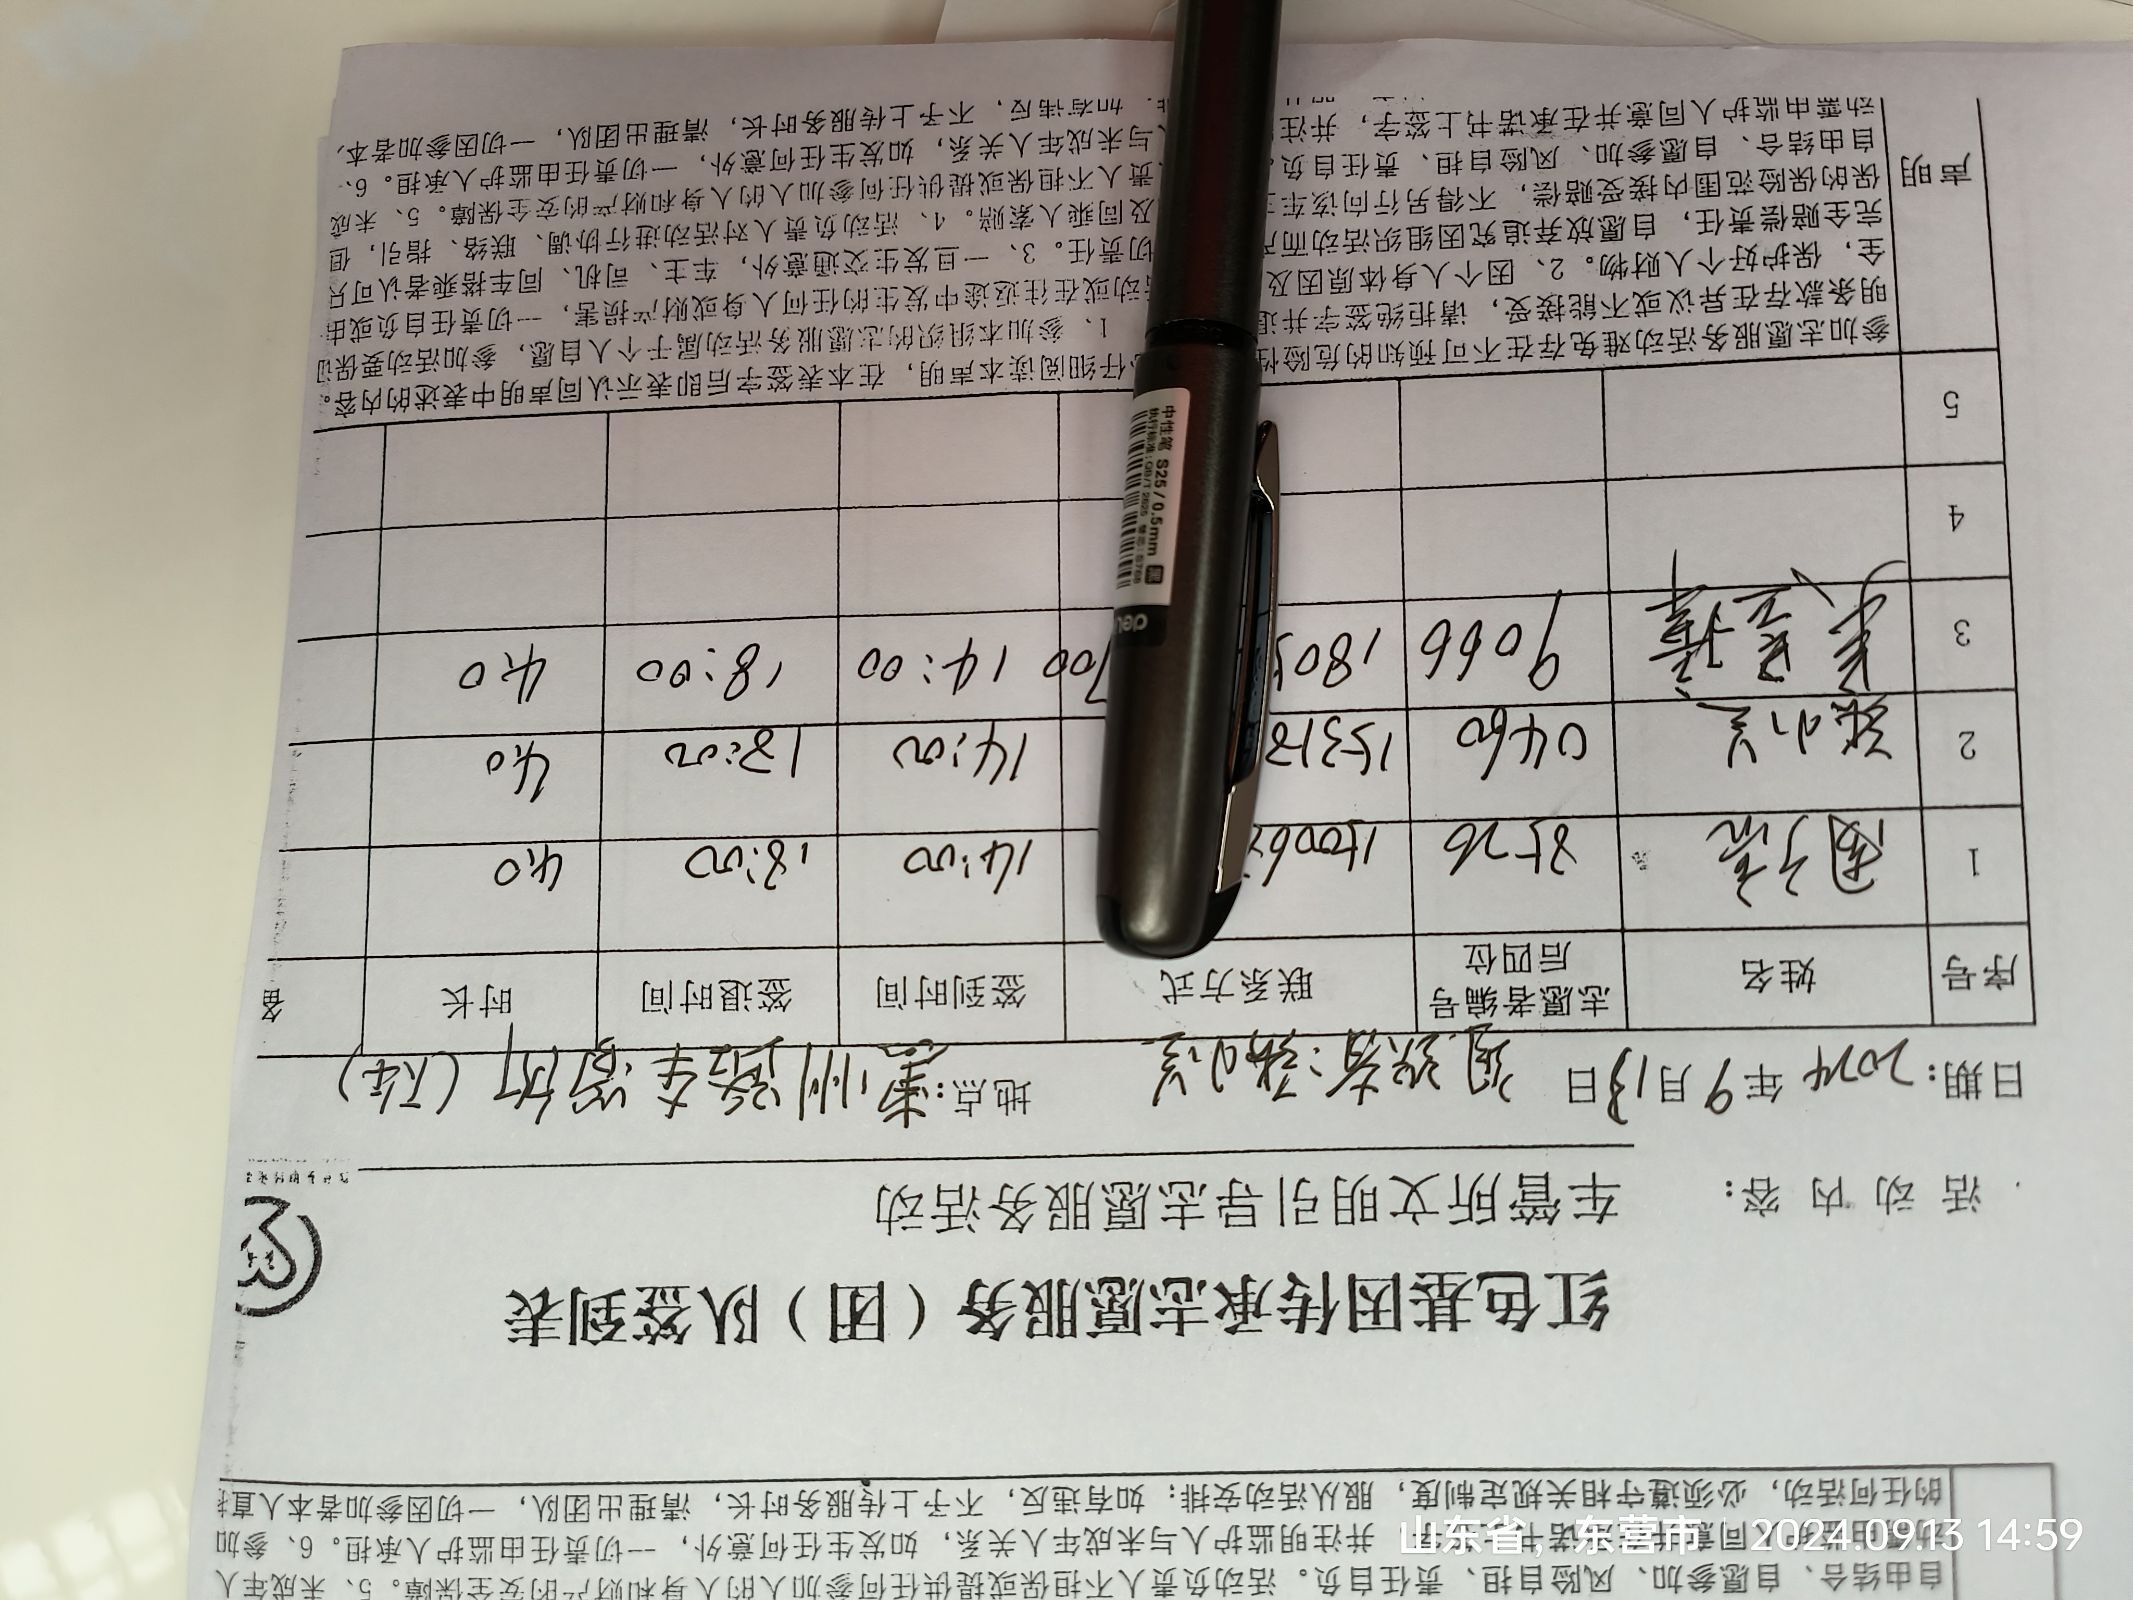 红色基因传承志愿服务（团）队签到表
活动内容： 车管所文明引导志愿服务活动
日期：2024年9月13日 组织者：张小兰 地点：惠州路车管所（下午）
序号 姓名 志愿者编号后四位 联系方式 签到时间 签退时间 时长 备
1 8526 15006 14:00 18:00 4.0
2 张小兰 0460 15318 14:00 18:00 4.0
3 9066 1805 700 14:00 18:00 4.0
4
5
声明
参加志愿服务活动难免存在不可预知的危险性 仔细阅读本声明，在本表签字后即表示认同声明中表述的内容。
明条款存在异议或不能接受，请拒绝签字并退 1、参加本组织的志愿服务活动属于个人自愿，参加活动要保证
全，保护好个人财物。2、因个人身体原因及 动或在往返途中发生的任何人身或财产损害，一切责任自负或由
完全赔偿责任，自愿放弃追究因组织活动而产 切责任。3、一旦发生交通意外，车主、司机、同车搭乘者认可只
保的保险范围内接受赔偿，不得另行向该车主 及同乘人索赔。4、活动负责人对活动进行协调、联络、指引，但
自由结合、自愿参加、风险自担、责任自负。 责人不担保或提供任何参加人的人身和财产的安全保障。5、未成
动需由监护人同意并在承诺书上签字，并注 人与未成年人关系，如发生任何意外，一切责任由监护人承担。6、
如有违反，不予上传服务时长，清理出团队，一切因参加者本人
自由结合、自愿参加、风险自担、责任自负。活动负责人不担保或提供任何参加人的人身和财产的安全保障。5、未成年人
并注明监护人与未成年人关系，如发生任何意外，一切责任由监护人承担。6、参加
的任何活动，必须遵守相关规定制度，服从活动安排；如有违反，不予上传服务时长，清理出团队，一切因参加者本人直接
中性笔 S25/0.5mm 黑
deli
山东省，东营市 2024.09.13 14:59